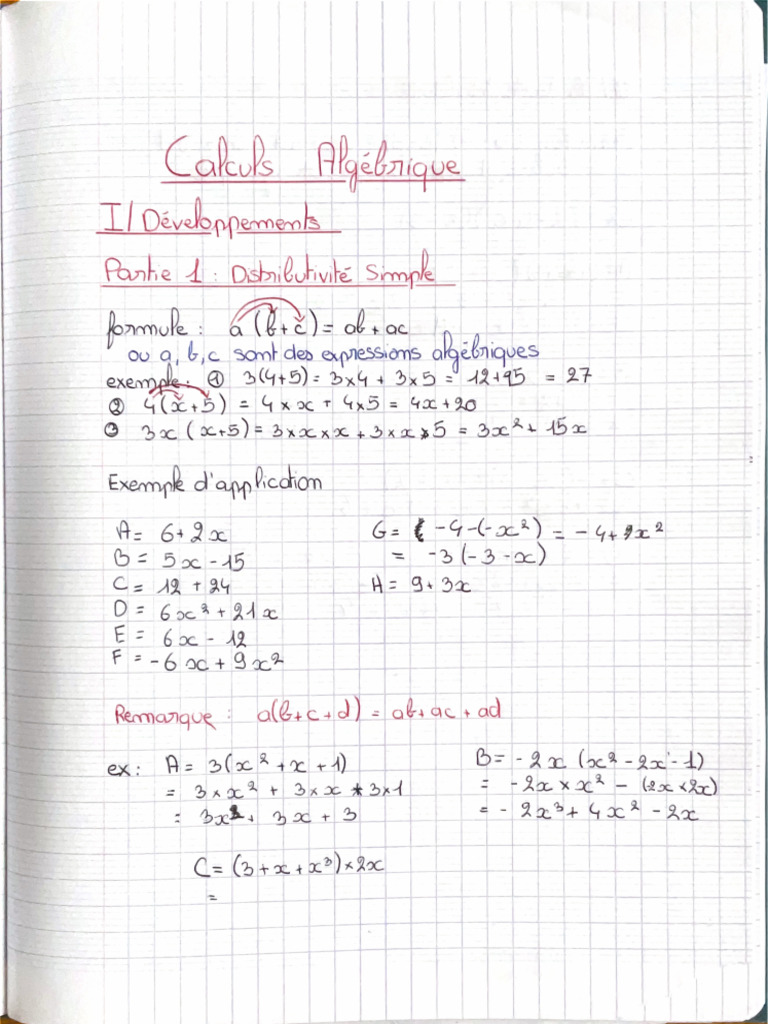 Calculs Algébrique
I/ Développements
Partie 1 : Distributivité Simple
formule : a (b+c) = ab + ac
ou a, b, c sont des expressions algébriques
exemple : ① 3(4+5) = 3×4 + 3×5 = 12+95 = 27
② 4(x+5) = 4 × x + 4×5 = 4x + 20
③ 3x (x+5) = 3 × x × x + 3 × x × 5 = 3x² + 15x
Exemple d'application
A = 6 + 2x
B = 5x - 15
C = 12 + 24
D = 6x² + 21x
E = 6x - 12
F = -6x + 9x²
G = -4-(-x²) = -4 + x²
= -3(-3-x)
H = 9 + 3x
Remarque : a(b+c+d) = ab+ac+ad
ex : A = 3(x² + x + 1)
= 3 × x² + 3 × x + 3×1
= 3x² + 3x + 3
B = -2x (x² - 2x - 1)
= -2x × x² - (2x × 2x)
= -2x³ + 4x² - 2x
C = (3 + x + x³) × 2x
=